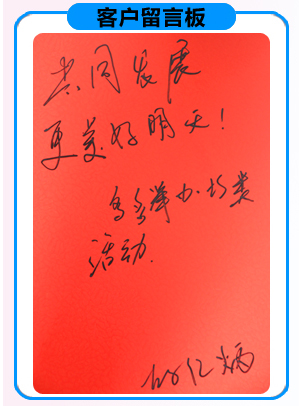 客户留言板
共同发展
更美好明天!
多多举办此类
活动.
仁炳